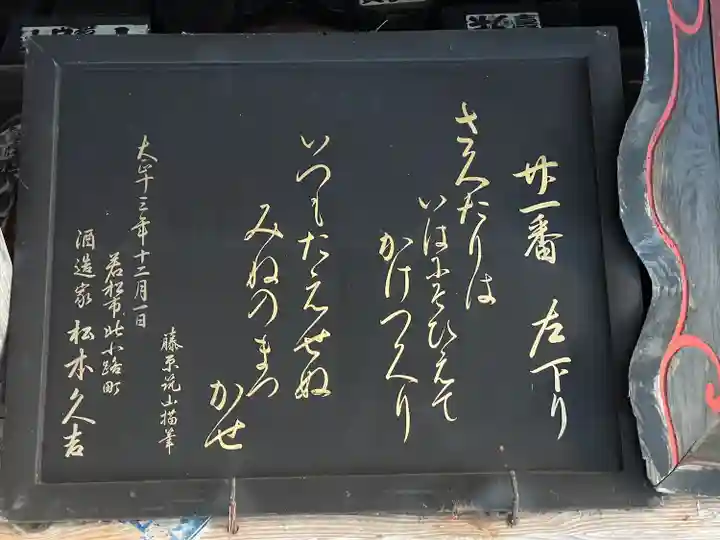 廿一番 左下り
さくたりは
いはにそひえて
かけつくり
いつもたえせぬ
みねのまつ
かせ
藤原 山描筆
大正十三年十二月一日
若松市北小路町
酒造家 松本久吉